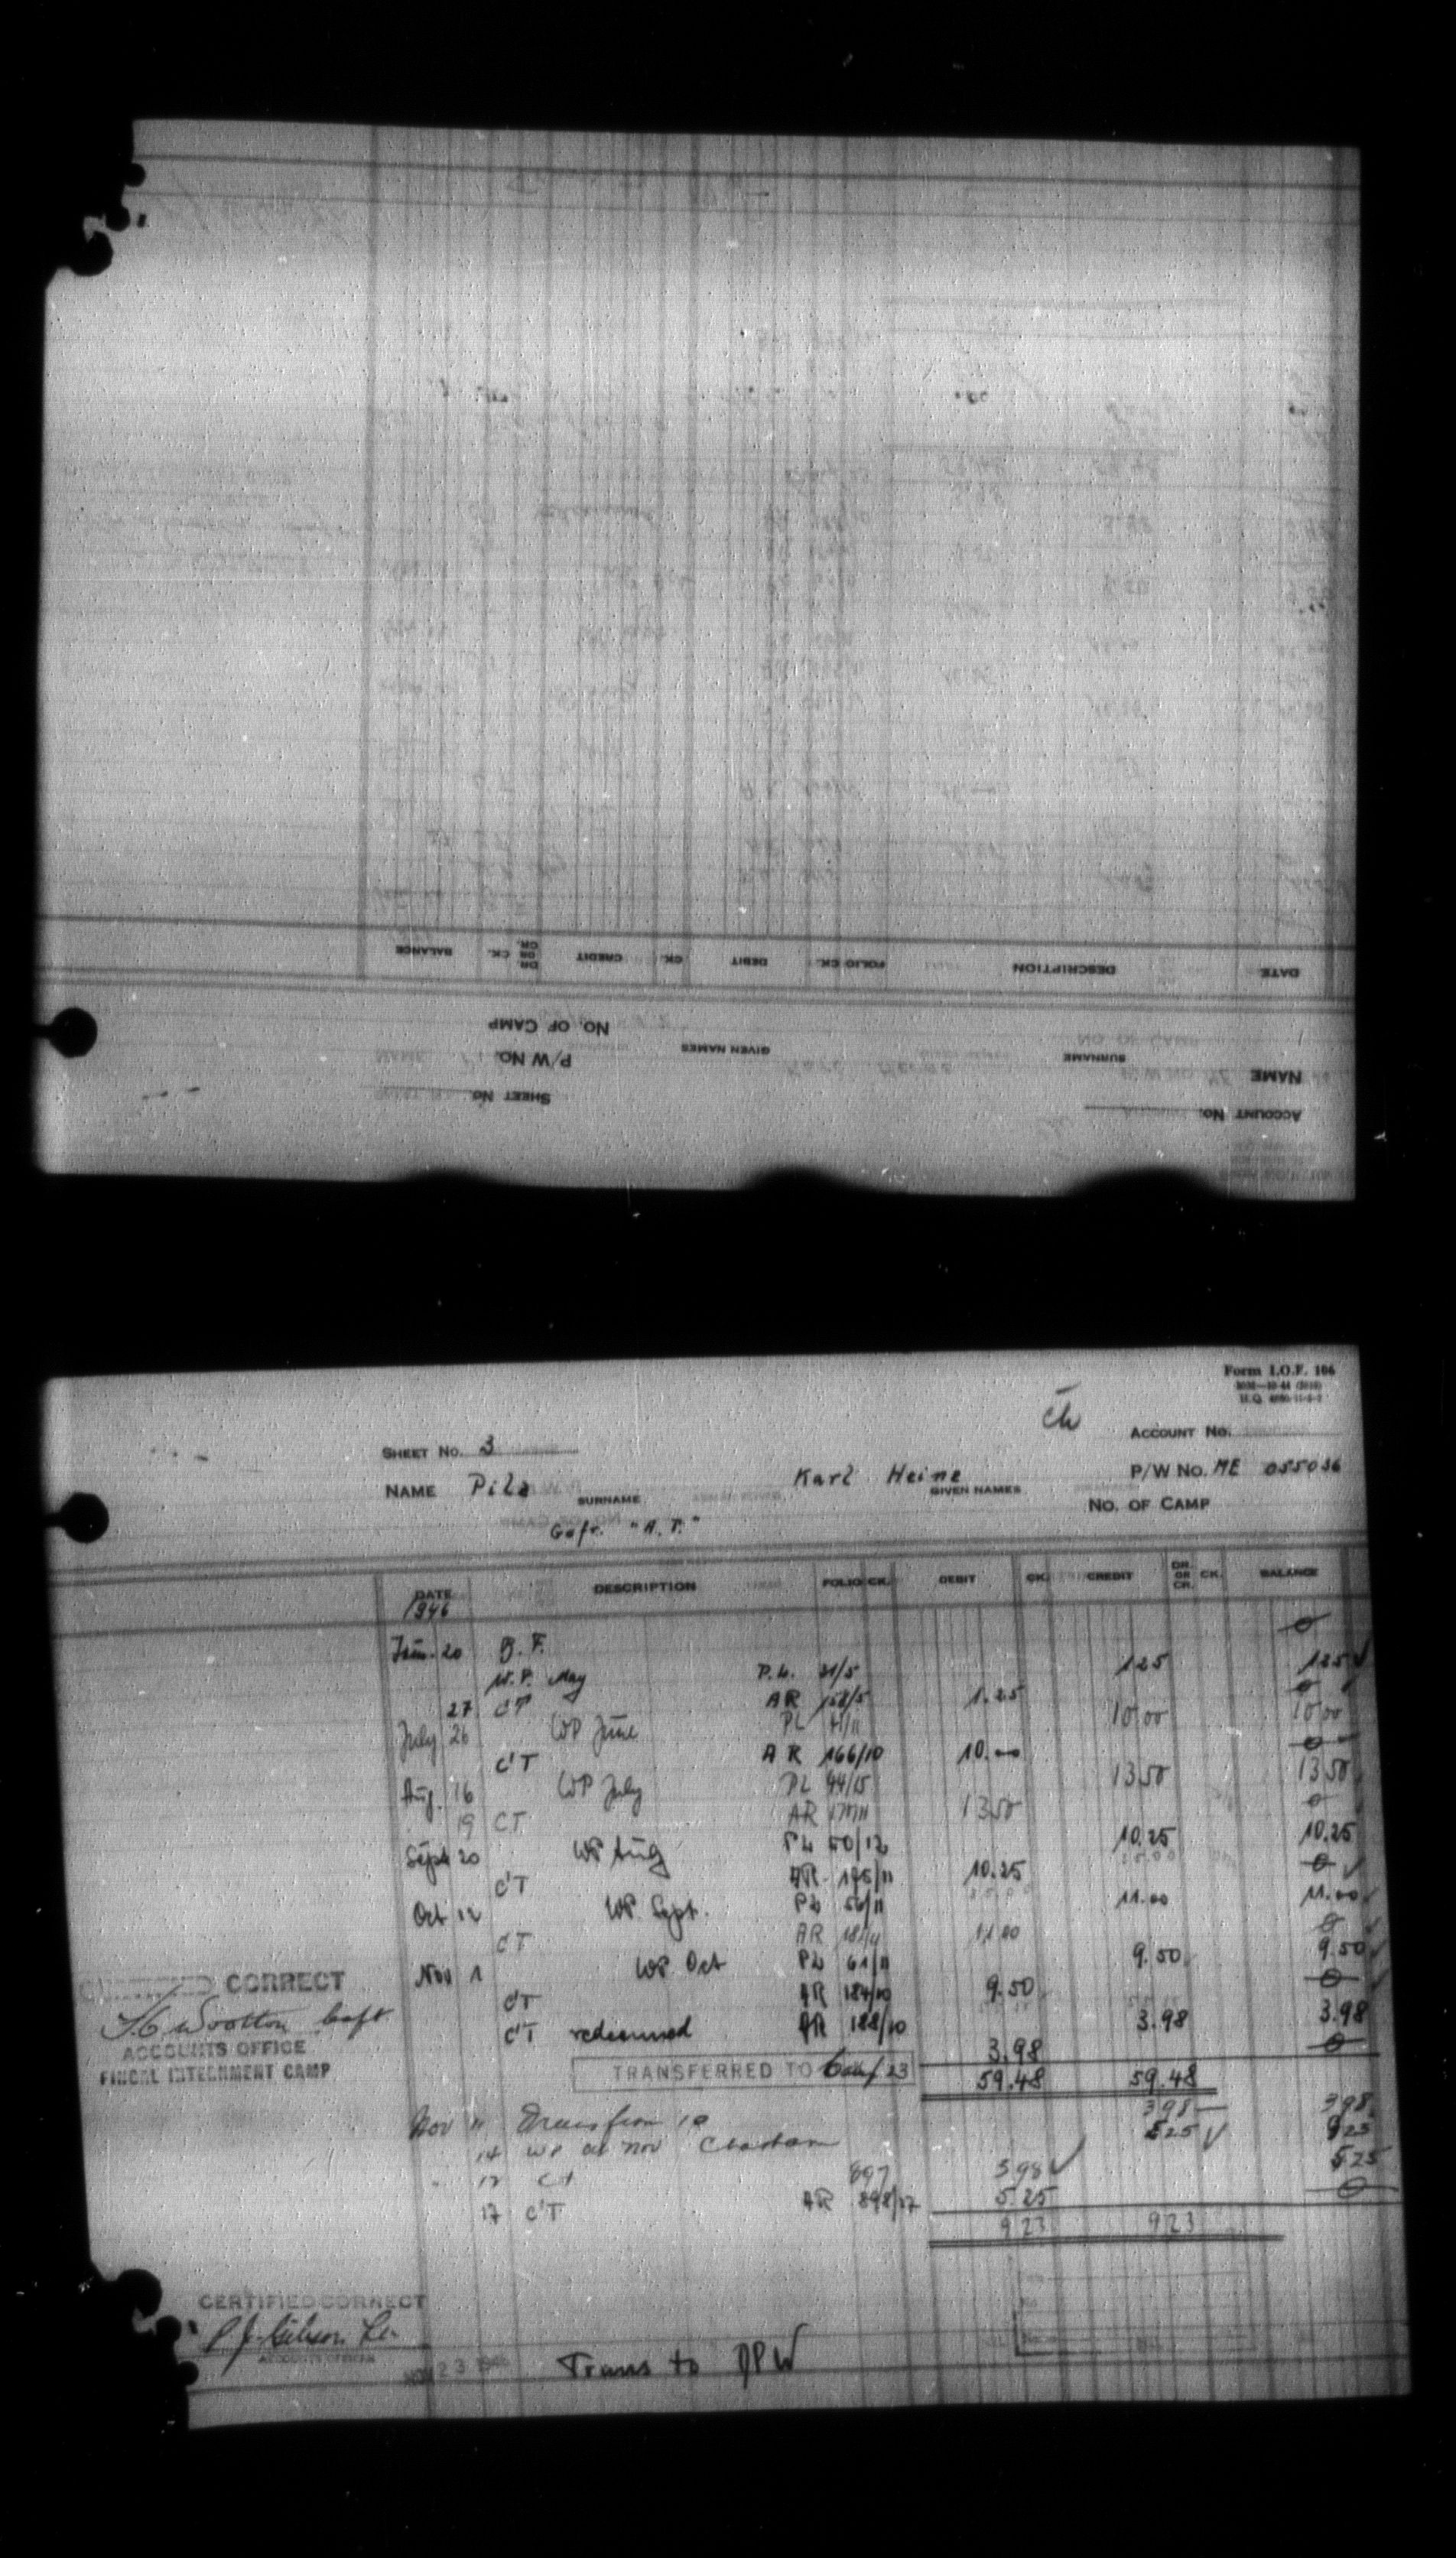 BALANCE CK. DR. OR CR. CREDIT CK. DEBIT FOLIO CK. DESCRIPTION DATE
NO. OF CAMP
P/W No. GIVEN NAMES SURNAME NAME
SHEET No. ACCOUNT No.
Form I.O.F. 106
SHEET No. 3 ACCOUNT No.
NAME Pilz Karl Heinz P/W No. ME 055036
SURNAME GIVEN NAMES
Gefr. "A.T." NO. OF CAMP
DATE DESCRIPTION FOLIO CK. DEBIT CK. CREDIT DR. OR CR. CK. BALANCE
1946
Jun. 20 B.F. 0
W.P. May P.L. 31/5 1.25 1.25
27 CT AR 158/5 1.25 0
July 26 WP June PL 41/11 10 00 10 00
C'T AR 166/10 10.00 0
Aug. 16 WP July PL 44/15 13 50 13 50
19 CT AR 170/11 13 50 0
Sept 20 WP Aug PL 50/12 10.25 10.25
C'T AR 175/11 10.25 0
Oct 12 WP. Sept. PL 56/11 11.00 11.00
CT AR 11 00 0
Nov 1 WP Oct PL 61/11 9.50 9.50
C'T AR 184/10 9.50 0
C'T redeemed AR 188/10 3.98 3.98
3.98 0
TRANSFERRED TO 23 59.48 59.48
Nov 11 Trans from 10 3 98 3 98
14 WP at Nov Chatham 5 25 9 23
12 CT 897 3 98 5 25
17 C'T AR 898/17 5.25 0
9 23 9 23
CORRECT
Wootton Capt
ACCOUNTS OFFICE
FINGAL INTERNMENT CAMP
CERTIFIED CORRECT
ACCOUNTS OFFICER
NOV 23 1946
Trans to DPW